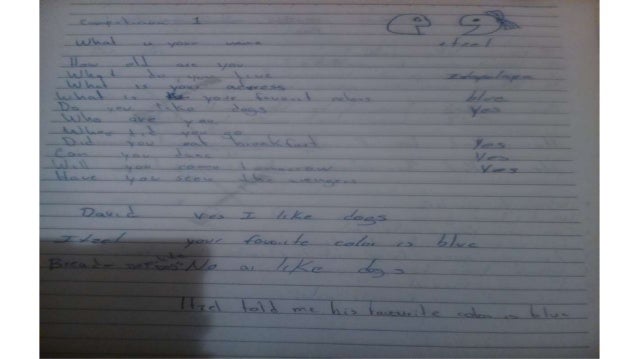 1
What is your name Itzel
How old are you
Where do you live Iztapalapa
What is your adress
What is your favorit color blue
Do you like dogs Yes
Who are you
did you go
Did you eat breakfast Yes
Can you Yes
Will you come tomorrow Yes
Have you seen the avengers
David yes I like dogs
Itzel your favorite color is blue
No like dogs
Itzel told me his favourite color is blue